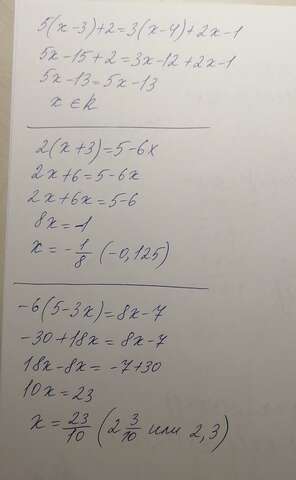 5(x-3)+2=3(x-4)+2x-1
5x-15+2=3x-12+2x-1
5x-13=5x-13
x ∈ R
2(x+3)=5-6x
2x+6=5-6x
2x+6x=5-6
8x=-1
x = -1/8 (-0,125)
-6(5-3x)=8x-7
-30+18x=8x-7
18x-8x=-7+30
10x=23
x=23/10 (2 3/10 или 2,3)